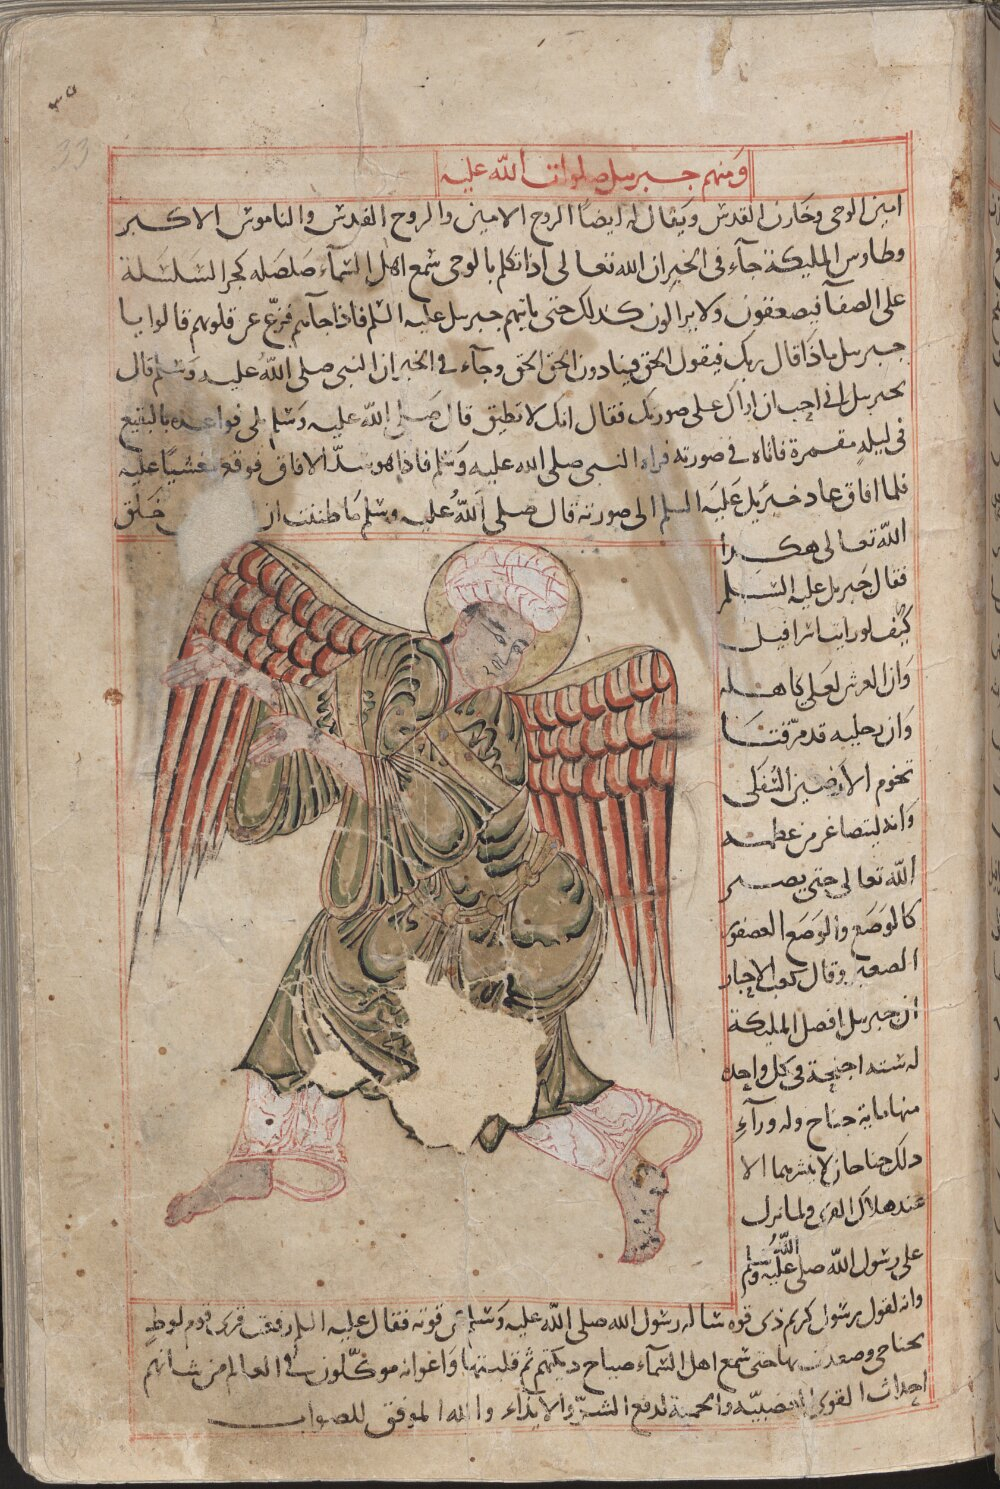 ٣٥
33
ومنهم جبريل صلوات الله عليه
امين الوحى وخازن القدس ويقال له ايضا الروح الامين والروح القدس والناموس الاكبر
وطاوس المليكة جآء فى الخبر ان الله تعالى اذا تكلم بالوحى سمع اهل السمآء صلصله كجر السلسلة
على الصفآ فيصعقون ولا يزالون كذلك حتى ياتيهم جبريل عليه السلم فاذا جآهم فزع عن قلوبهم قالوا يا
جبريل ماذا قال ربك فيقول الحق فينادون الحق الحق وجآء فى الخبر ان النبى صلى الله عليه وسلم قال
لجبريل انى احب ان اراك على صورتك فقال انك لا تطيق قال صلى الله عليه وسلم لى فواعده بالبقيع
فى ليلة مقمرة فاتاه فى صورته فراه النبى صلى الله عليه وسلم فاذا هو سد الافاق فوقع مغشيا عليه
فلما افاق عاد جبريل عليه السلم الى صورته قال صلى الله عليه وسلم ما ظننت ان خلق
الله تعالى هكذا
فقال جبريل عليه السلم
كيف لو رايت اسرافيل
وان العرش لعلى كاهله
وان رجليه قد مرقتا
تخوم الارضين السفلى
وانه ليتصاغر من عظمة
الله تعالى حتى يصير
كالوصع والوصع العصفور
الصغير وقال كعب الاحبار
ان جبريل افضل المليكة
له ستة اجنحة فى كل واحد
منها ماية جناح وله ورآء
ذلك جناحان لا ينشرهما الا
عند هلاك القرى ولما نزل
على رسول الله صلى الله عليه وسلم
وانه لقول رسول كريم ذى قوة ساله رسول الله صلى الله عليه وسلم عن قوته فقال عليه السلم رفعت قرى قوم لوط
بجناحى وصعدت بها حتى سمع اهل السمآء صياح ديكتهم ثم قلبتها واعوانه موكلون فى العالم من شانهم
احداث القوى الغضبيه والحمية لدفع الشر والايذاء والله الموفق للصواب